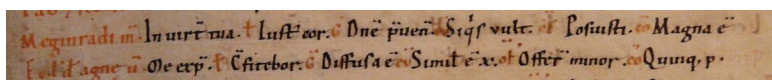 Meginradi m̅. In virt̅ tua. t̅ Iust̅ eor. c̅ Dn̅e p̅uen̅. Siq̇s vult. of̅ Posuisti. co̅ Magna e̅
agne Me exp̅. t̅ C̅fitebor. c̅ Diffusa e̅ Simil̅ e̅ x. of̅ Offer̅ minor. co̅ Quinq, p.